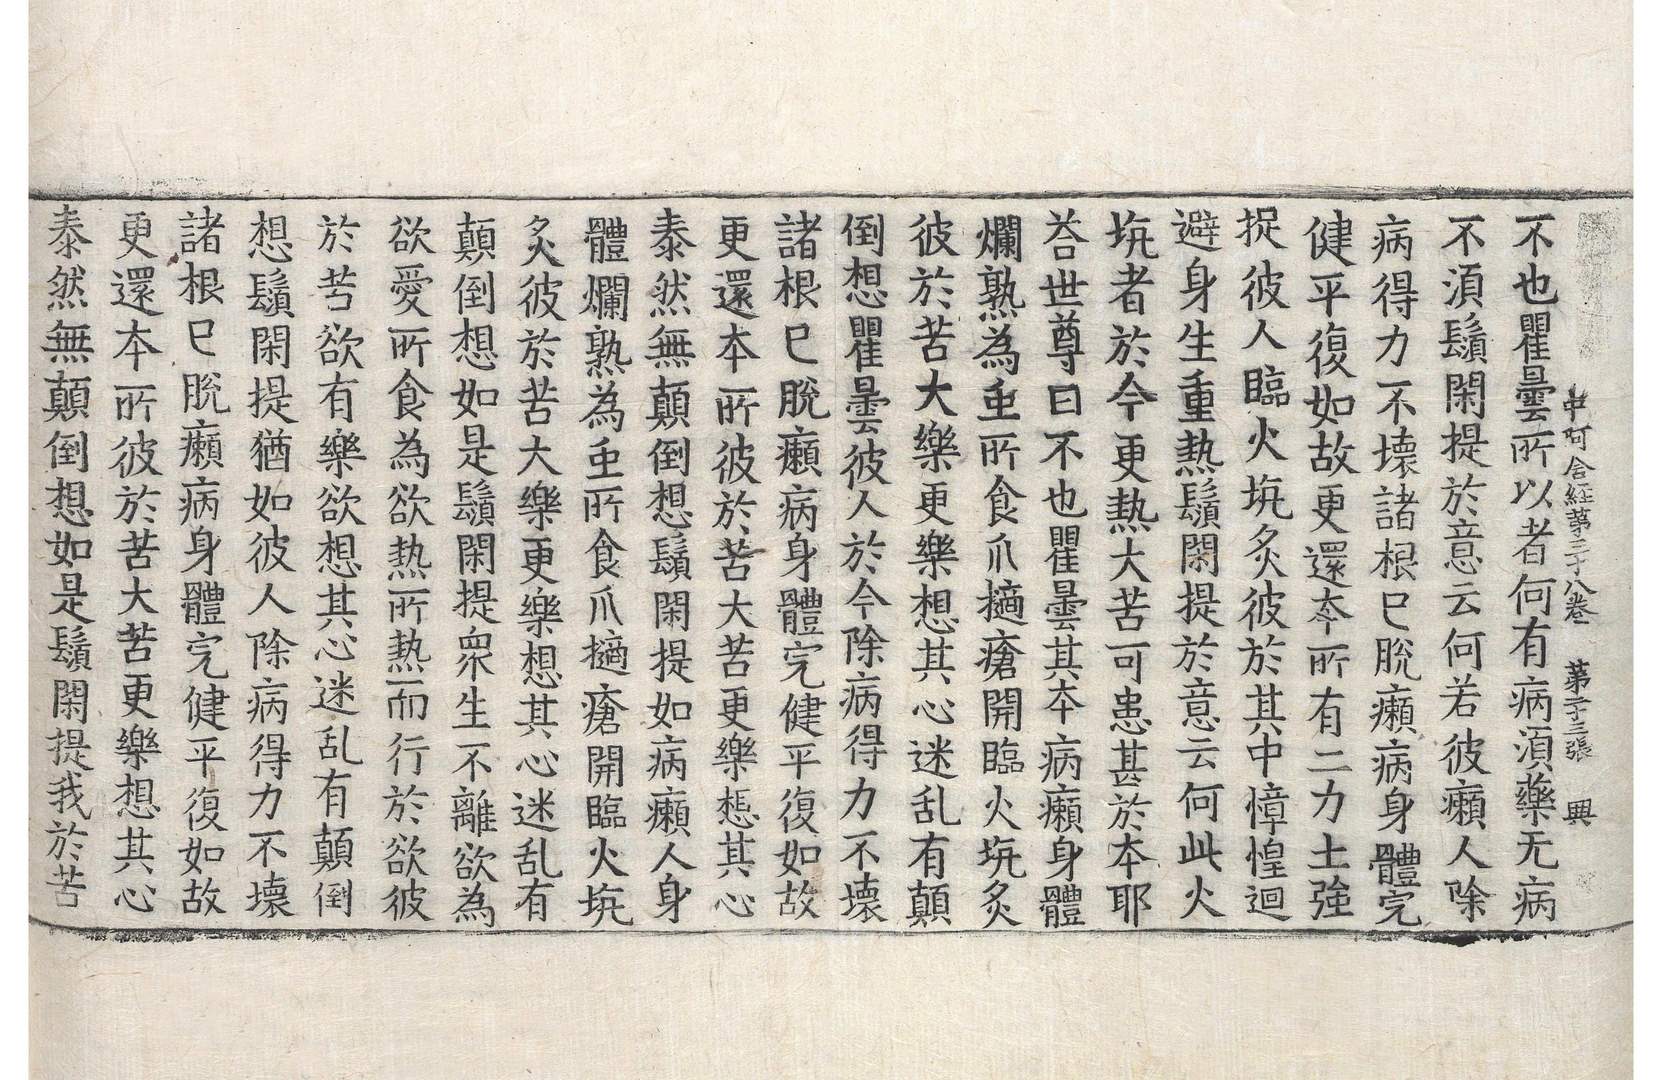 中阿含經第三十八卷 第十三張 興
不也瞿曇所以者何有病須藥无病
不須鬚閑提於意云何若彼癩人除
病得力不壞諸根已脫癩病身體完
健平復如故更還本所有二力士強
捉彼人臨火坑炙彼於其中慞惶迴
避身生重熱鬚閑提於意云何此火
坑者於今更熱大苦可患甚於本耶
荅世尊曰不也瞿曇其本病癩身體
爛熟為虫所食爪擿瘡開臨火坑炙
彼於苦大樂更樂想其心迷乱有顛
倒想瞿曇彼人於今除病得力不壞
諸根已脫癩病身體完健平復如故
更還本所彼於苦大苦更樂想其心
泰然無顛倒想鬚閑提如病癩人身
體爛熟為虫所食爪擿瘡開臨火坑
炙彼於苦大樂更樂想其心迷乱有
顛倒想如是鬚閑提衆生不離欲為
欲愛所食為欲熱所熱而行於欲彼
於苦欲有樂欲想其心迷乱有顛倒
想鬚閑提猶如彼人除病得力不壞
諸根已脫癩病身體完健平復如故
更還本所彼於苦大苦更樂想其心
泰然無顛倒想如是鬚閑提我於苦